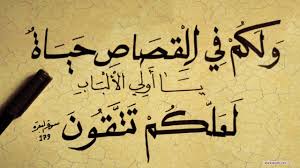 وَلَكُمْ فِي الْقِصَاصِ حَيَاةٌ
يَا أُولِي الْأَلْبَابِ
لَعَلَّكُمْ تَتَّقُونَ
سورة البقرة
179